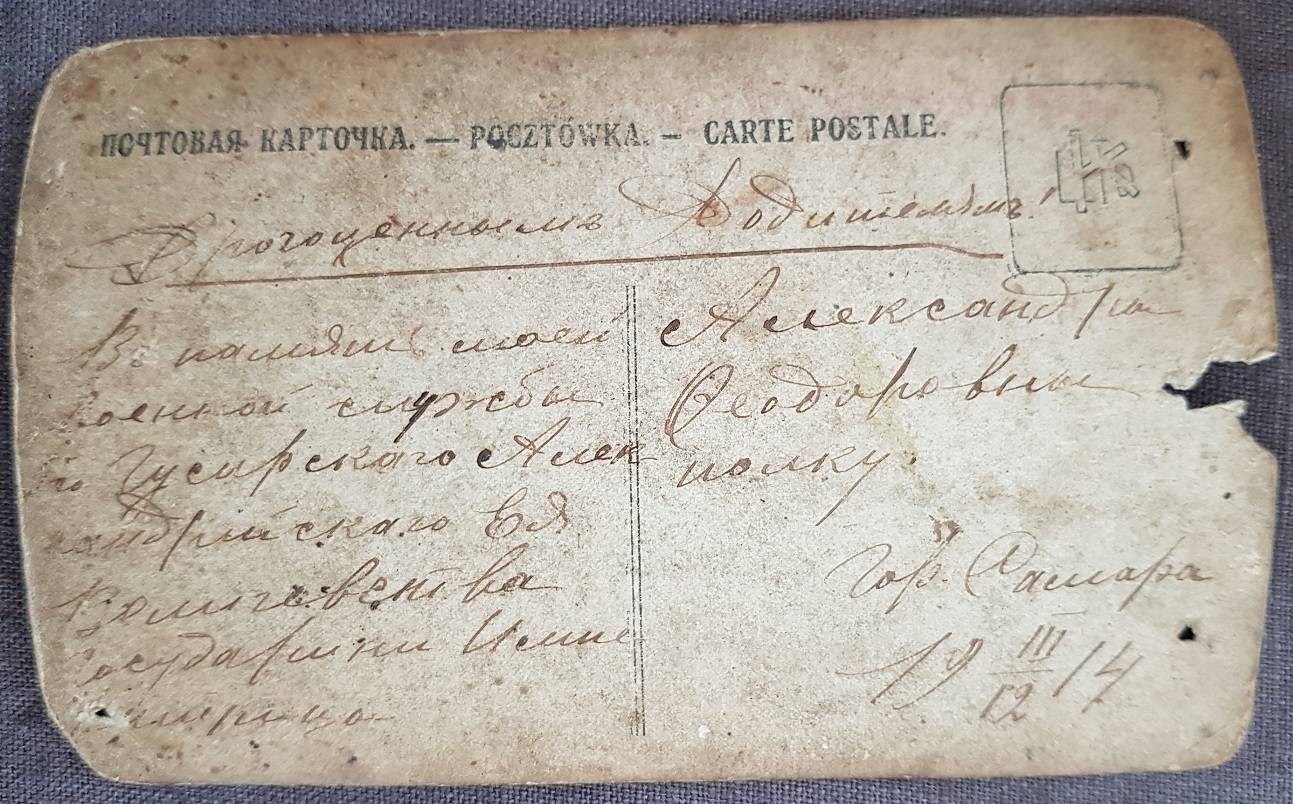 ПОЧТОВАЯ КАРТОЧКА. — POCZTÓWKA. — CARTE POSTALE.
Дрогоценнымъ Родителямъ!
Въ память моей
военной службы
Гусарского Алек-
андрийскаго Ея
Величества
Государини Импе
Александры
Феодоровны
полку.
Гор. Самара
19 III/12 14